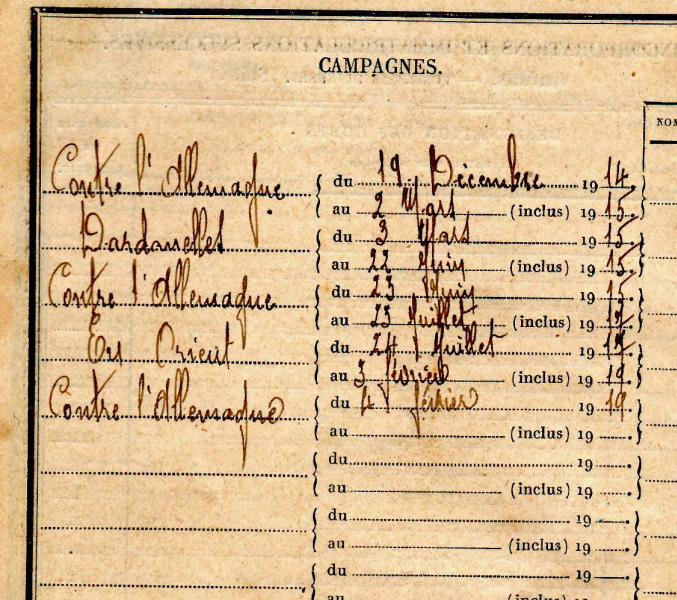 CAMPAGNES.
NOM
Contre l'Allemagne du 19 Décembre 1914
au 2 Mars (inclus) 1915
Dardanelles du 3 Mars 1915
au 22 Juin (inclus) 1915
Contre l'Allemagne du 23 Juin 1915
au 23 Juillet (inclus) 19
En Orient du 24 Juillet 19
au 3 février (inclus) 1919
Contre l'Allemagne du 4 février 1919
au (inclus) 19
du 19
au (inclus) 19
du 19
au (inclus) 19
du 19
au (inclus) 19